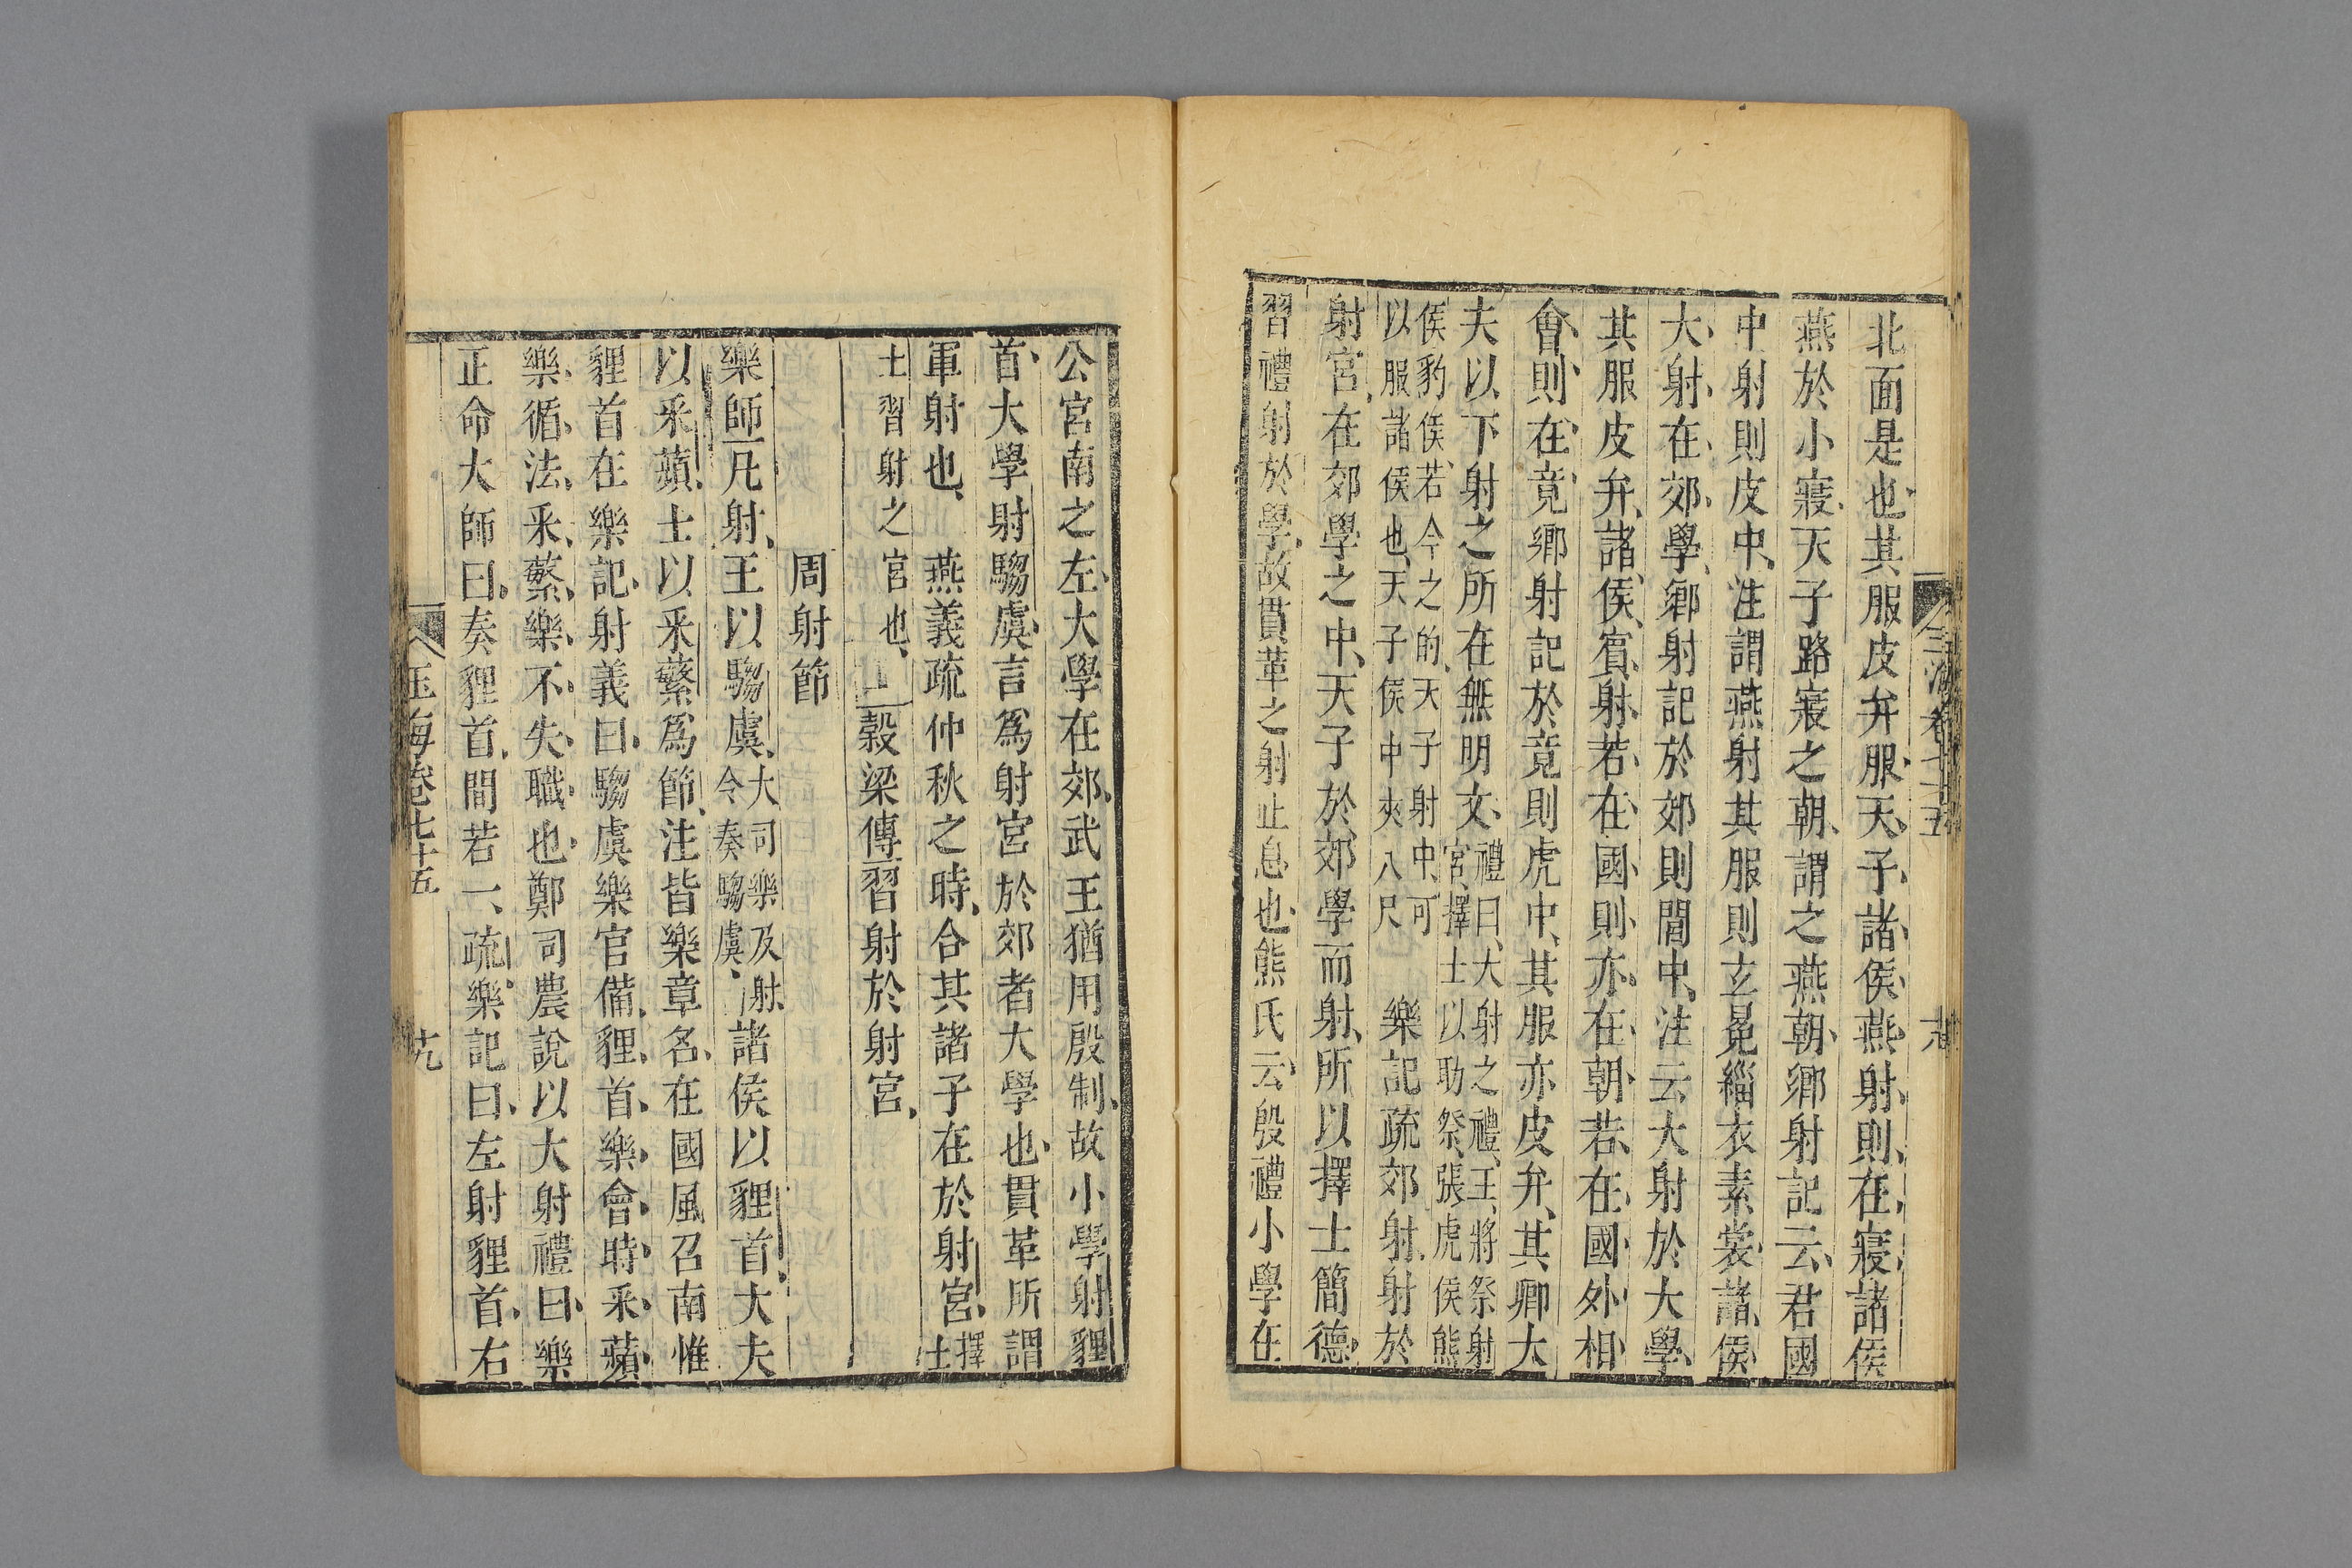 北面是也其服皮弁服天子諸侯燕射則在寢諸侯
燕於小寢天子路寢之朝謂之燕朝鄉射記云君國
中射則皮中注謂燕射其服則玄冕緇衣素裳諸侯
大射在郊學鄉射記於郊則閭中注云大射於大學
其服皮弁諸侯賓射若在國則亦在朝若在國外相
會則在竟鄉射記於竟則虎中其服亦皮弁其卿大
夫以下射之所在無明文禮曰大射之禮王將祭射
宮擇士以助祭張虎侯熊
侯豹侯若今之的天子射中可
以服諸侯也天子侯中夾八尺樂記疏郊射射於
射宮在郊學之中天子於郊學而射所以擇士簡德
習禮射於學故貫革之射止息也熊氏云殷禮小學在
玉海卷七十五
公宮南之左大學在郊武王猶用殷制故小學射貍
首大學射騶虞言為射宮於郊者大學也貫革所謂
軍射也燕義疏仲秋之時合其諸子在於射宮擇
士
士習射之宮也穀梁傳習射於射宮
周射節
樂師凡射王以騶虞大司樂及射
令奏騶虞諸侯以貍首大夫
以采蘋士以采蘩為節注皆樂章名在國風召南惟
貍首在樂記射義曰騶虞樂官備貍首樂會時采蘋
樂循法采蘩樂不失職也鄭司農說以大射禮曰樂
正命大師曰奏貍首間若一疏樂記曰左射貍首右
玉海卷七十五
十九